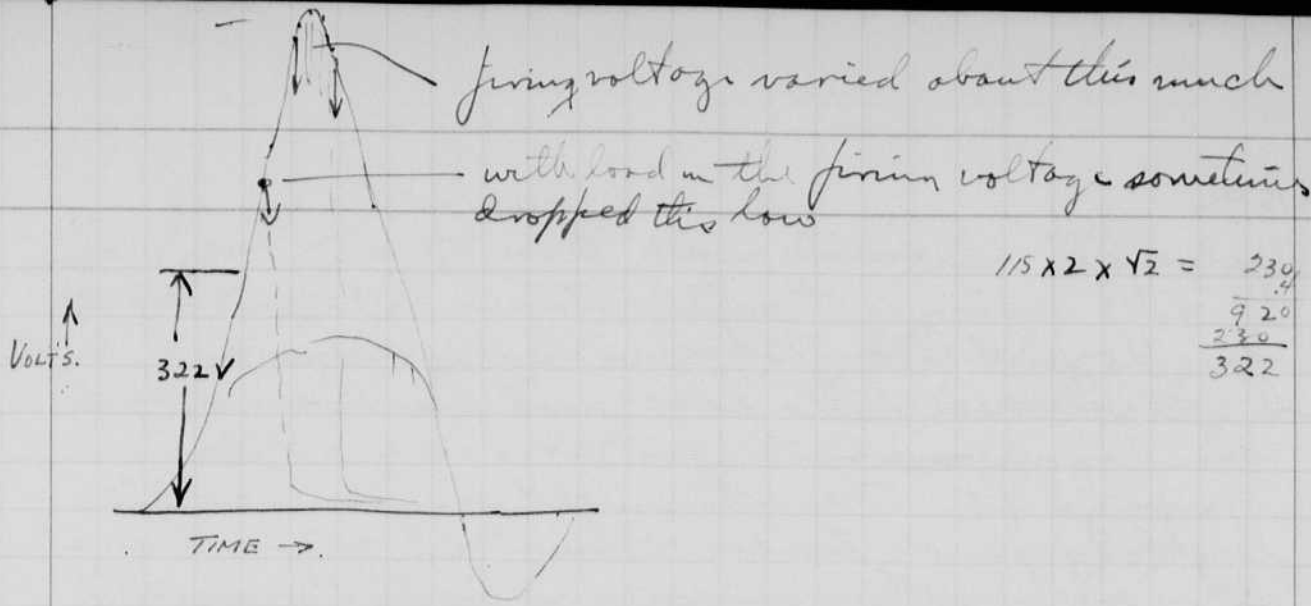 firing voltage varied about this much
with load on the firing voltage sometimes
dropped this low
115 x 2 x √2 = 230
.4
920
230
322
VOLTS.
322 V
TIME →.